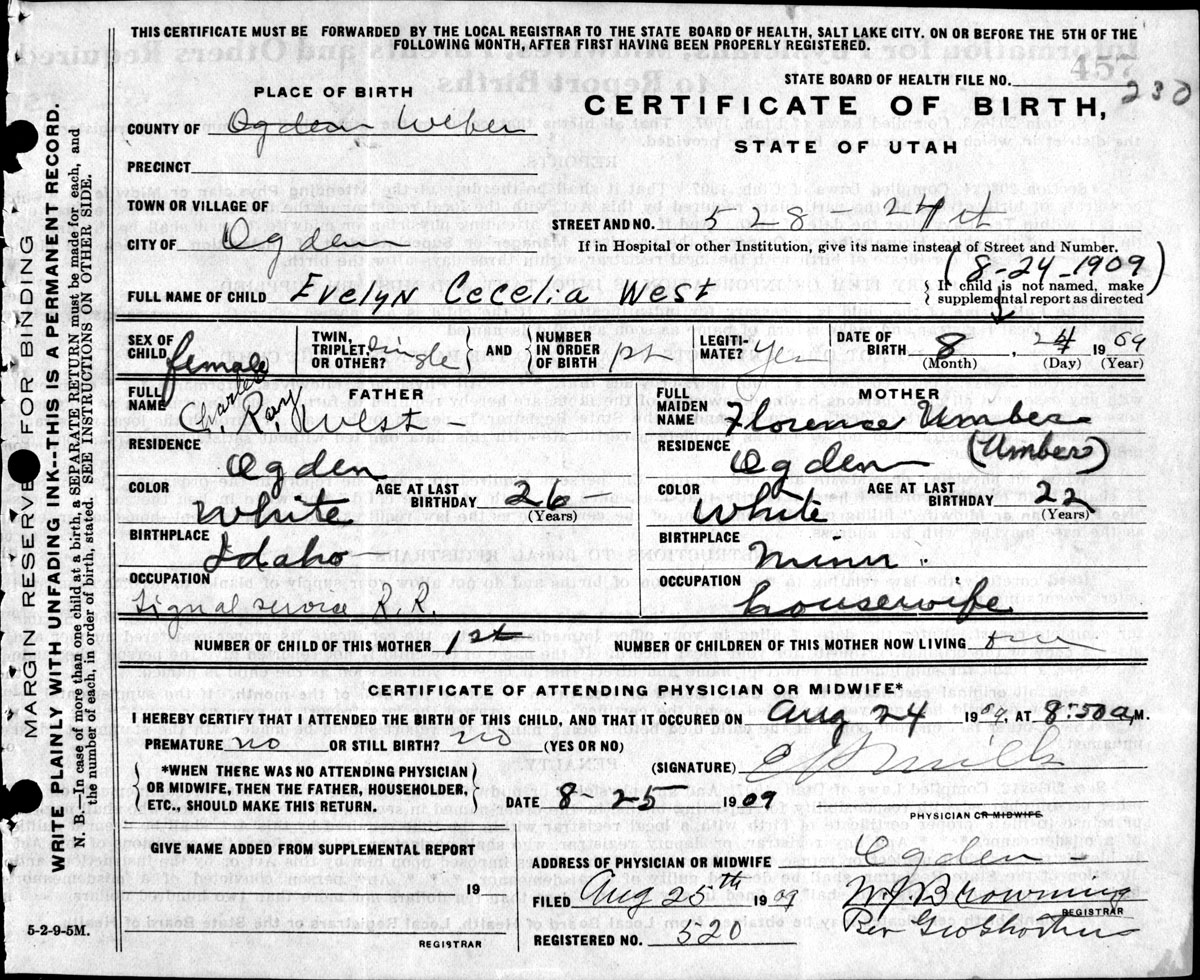 THIS CERTIFICATE MUST BE FORWARDED BY THE LOCAL REGISTRAR TO THE STATE BOARD OF HEALTH, SALT LAKE CITY. ON OR BEFORE THE 5TH OF THE
FOLLOWING MONTH, AFTER FIRST HAVING BEEN PROPERLY REGISTERED.
457
STATE BOARD OF HEALTH FILE NO. 230
PLACE OF BIRTH
CERTIFICATE OF BIRTH,
COUNTY OF Ogden Weber
STATE OF UTAH
PRECINCT
TOWN OR VILLAGE OF
STREET AND NO. 528 - 24th
CITY OF Ogden
If in Hospital or other Institution, give its name instead of Street and Number.
(8-24-1909)
FULL NAME OF CHILD Evelyn Cecelia West
{ If child is not named, make
supplemental report as directed
SEX OF CHILD female
TWIN, TRIPLET, OR OTHER? Single } AND { NUMBER IN ORDER OF BIRTH 1st
LEGITIMATE? Yes
DATE OF BIRTH 8, 24 1909
(Month) (Day) (Year)
FATHER
FULL NAME Charles
C. Ray R. West
RESIDENCE
Ogden
COLOR White AGE AT LAST BIRTHDAY 26
(Years)
BIRTHPLACE
Idaho
OCCUPATION
Signal service R.R.
MOTHER
FULL MAIDEN NAME Florence Umber
RESIDENCE (Umber)
Ogden
COLOR White AGE AT LAST BIRTHDAY 22
(Years)
BIRTHPLACE
Minn.
OCCUPATION
housewife
NUMBER OF CHILD OF THIS MOTHER 1st NUMBER OF CHILDREN OF THIS MOTHER NOW LIVING
CERTIFICATE OF ATTENDING PHYSICIAN OR MIDWIFE*
I HEREBY CERTIFY THAT I ATTENDED THE BIRTH OF THIS CHILD, AND THAT IT OCCURED ON Aug 24 1909, AT 8:50 a, M.
PREMATURE no OR STILL BIRTH? no (YES OR NO)
{ *WHEN THERE WAS NO ATTENDING PHYSICIAN
OR MIDWIFE, THEN THE FATHER, HOUSEHOLDER,
ETC., SHOULD MAKE THIS RETURN. }
(SIGNATURE) E P Mills
DATE 8 25 1909
PHYSICIAN OR MIDWIFE
GIVE NAME ADDED FROM SUPPLEMENTAL REPORT
19
REGISTRAR
ADDRESS OF PHYSICIAN OR MIDWIFE Ogden
FILED Aug 25th 1909 Browning
REGISTRAR
REGISTERED NO. 520 Per Geo Shorten
5-2-9-5M.
MARGIN RESERVED FOR BINDING
WRITE PLAINLY WITH UNFADING INK--THIS IS A PERMANENT RECORD.
N. B.—In case of more than one child at a birth, a SEPARATE RETURN must be made for each, and
the number of each, in order of birth, stated. SEE INSTRUCTIONS ON OTHER SIDE.